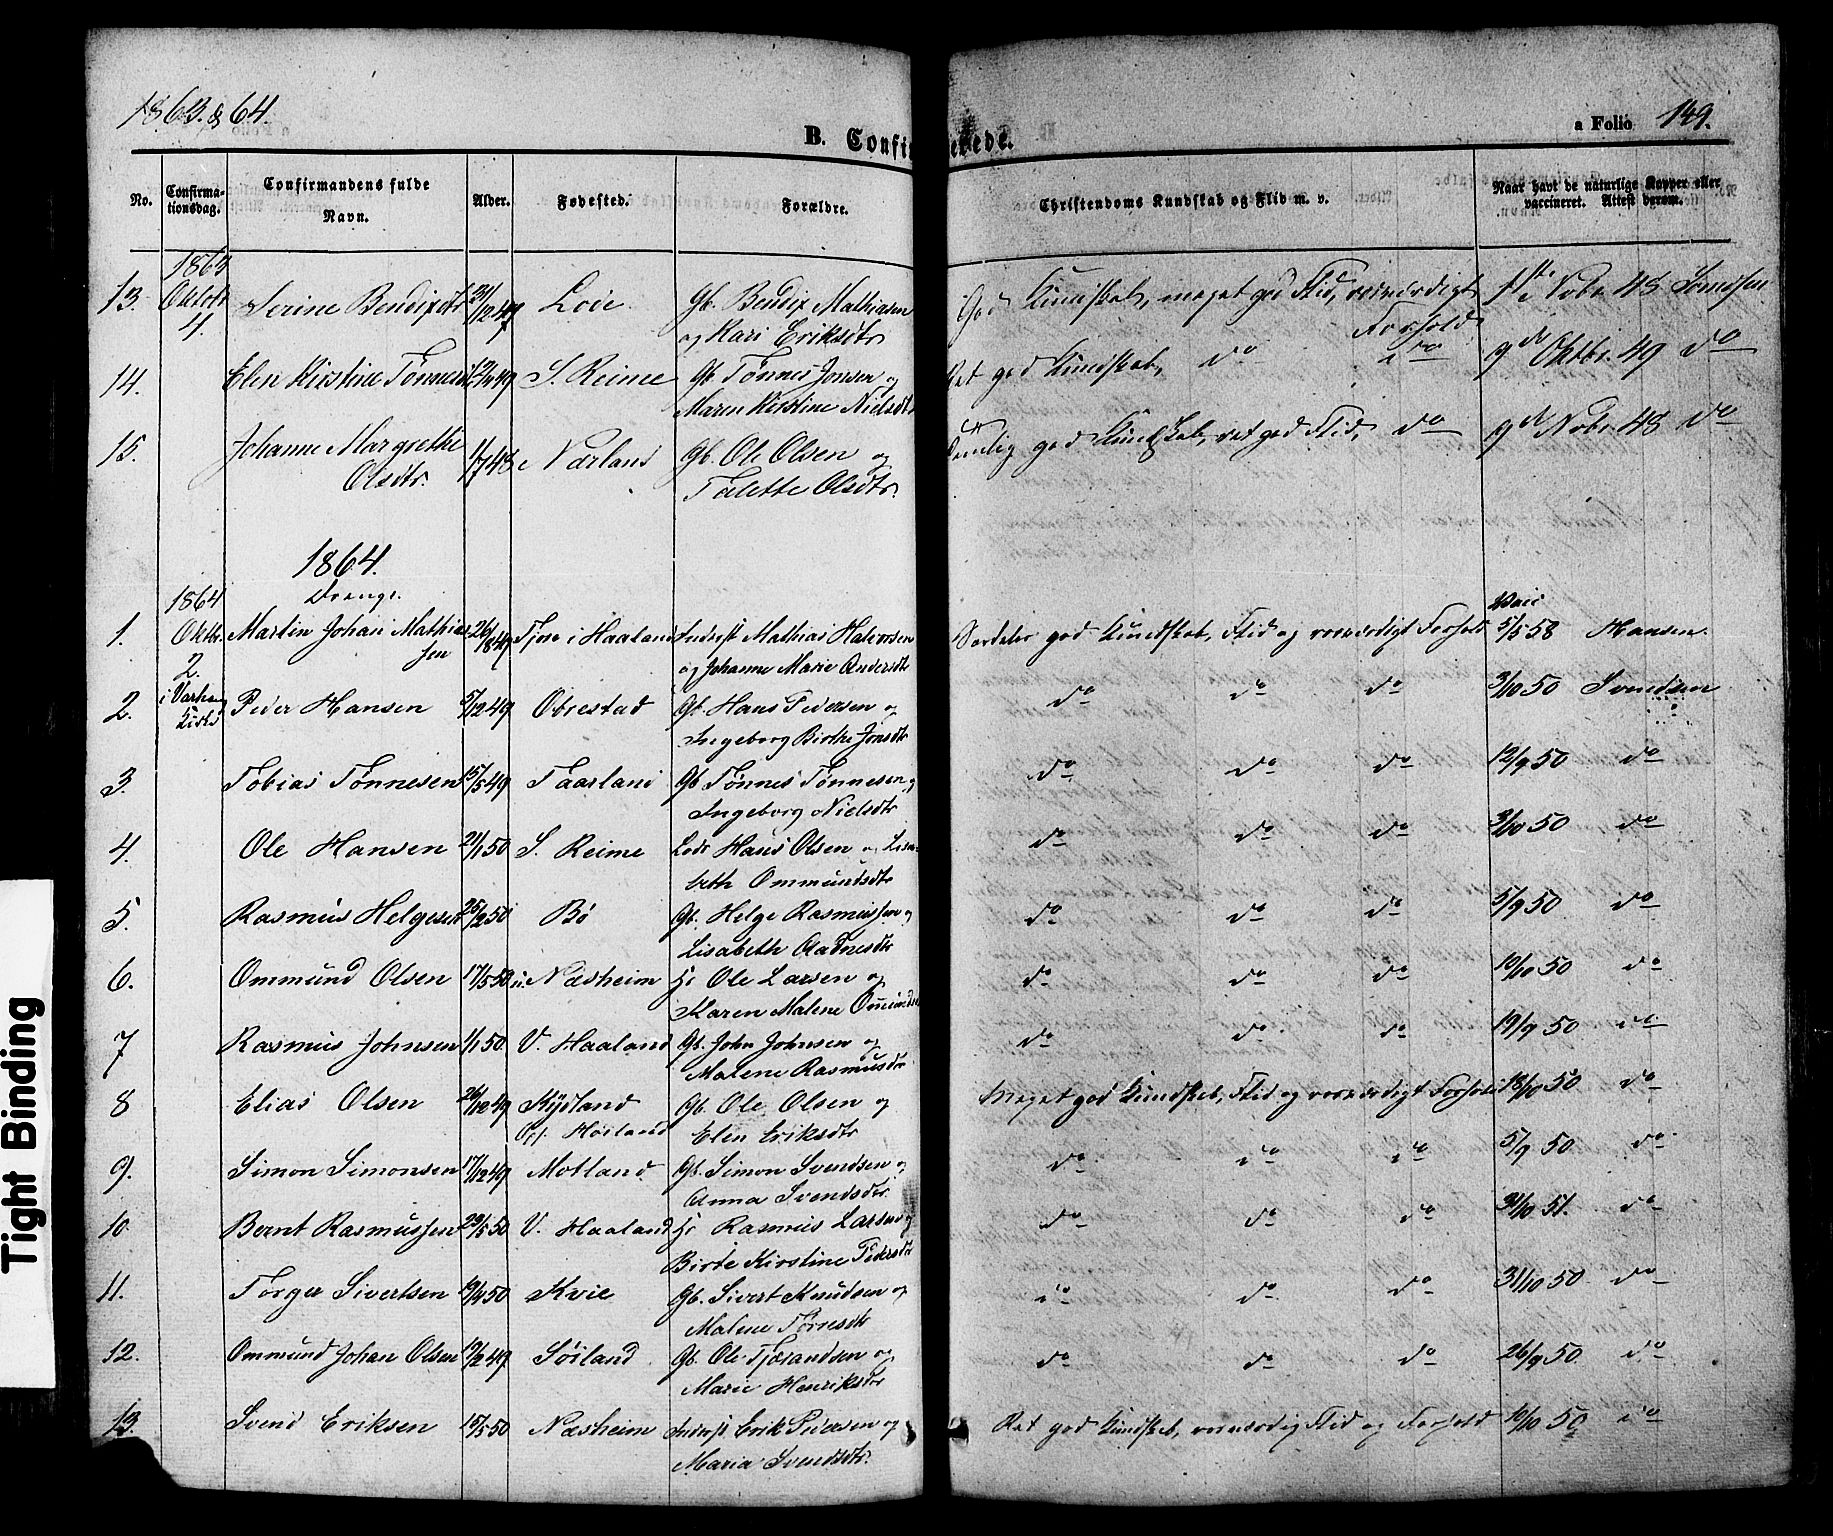 1863 & 64.
B. Confirmerede.
a Folio 149.
No. Confirmationsdag. Confirmandens fulde Navn. Alder. Fødested. Forældre. Christendoms Kundskab og Flid m. v. Naar havt de naturlige Kopper eller vaccineret. Attest derom.
1863
13. Oktobr 4. Serine Bendixdtr 21/12 47 Loie Gb. Bendix Mathiasen god Kundskab, meget god Flid, roesværdigt Forhold 1ste Nobr 48 Svendsen
og Kari Eriksdtr
14. Elen Kirstine Tønnesd 12/4 49 S. Reime Gb. Tønnes Jonsen og Ret god Kundskab, do do 9de Oktbr. 49 do
Maren Kirstine Nielsdtr
15. Johanne Margrethe 1/7 48 Nærland Gb. Ole Olsen og Temlig god Kundskab, ret god Flid, do 9de Nobr 48 do
Olsdtr. Talette Olsdtr.
1864.
Drenge.
1864 Vacc
1. Oktbr. 2. Martin Johan Mathiassen 26/8 49 Tjøe i Haaland Inderst Mathias Halvorsen Særdeles god Kundskab, Flid og roesværdigt Forhold 5/5 58 Hansen.
og Johanne Marie Andersdtr
2. i Varhoug Kirke Peder Hansen 5/12 49 Obrestad Gb. Hans Pedersen og do do do 3/10 50 Svendsen
Ingeborg Birthe Jonsdtr
3. Tobias Tønnesen 15/5 49 Taarland Gb Tønnes Tønnesen og do do do 12/9 50 do
Ingeborg Nielsdtr
4. Ole Hansen 21/1 50 S. Reime Leds Hans Olsen og Lisa- do do do 3/10 50 do
beth Ommundsdtr
5. Rasmus Helgesen 25/2 50 Bø Gb. Helge Rasmussen og do do do 5/9 50 do
Lisabeth Aadnesdtr
6. Ommund Olsen 17/5 50 Næsheim Hr Ole Larsen og do do do 10/10 50 do
Karen Malene Ommundsd
7 Rasmus Johnsen 1/1 50. V. Haaland Gb. John Johnsen og do do do 19/9 50 do
Malene Rasmusdtr
8 Elias Olsen 26/12 49 Kydland Gb. Ole Olsen og Meget god Kundskab, Flid og roesværdigt Forhold 18/10 50 do
Op. Høiland Elen Eriksdtr
9. Simon Simonsen 17/12 49 Motland Gb. Simon Svendsen og do do do 5/9 50 do
Anna Svendsdtr
10. Bernt Rasmussen 29/5 50 V. Haaland Hr Rasmus Larsen og do do do 31/10 51. do
Birte Kirstine Pedersdtr
11. Torger Sivertsen 19/4 50 Kvie Gb. Sivert Knudsen og do do do 31/10 50 do
Malene Tørresdtr
12. Ommund Johan Olsen 19/2 49 Søiland Gb. Ole Tjærandsen og do do do 26/9 50. do
Marie Henriksdtr
13. Svend Eriksen 15/5 50 Næsheim Inderst Erik Pedersen og Ret god Kundskab, roesværdig Flid og Forhold 10/10 50 do
Maria Svendsdtr.
Tight Binding